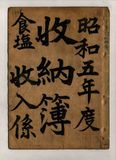 昭和五年度
收納簿
食塩
收入係